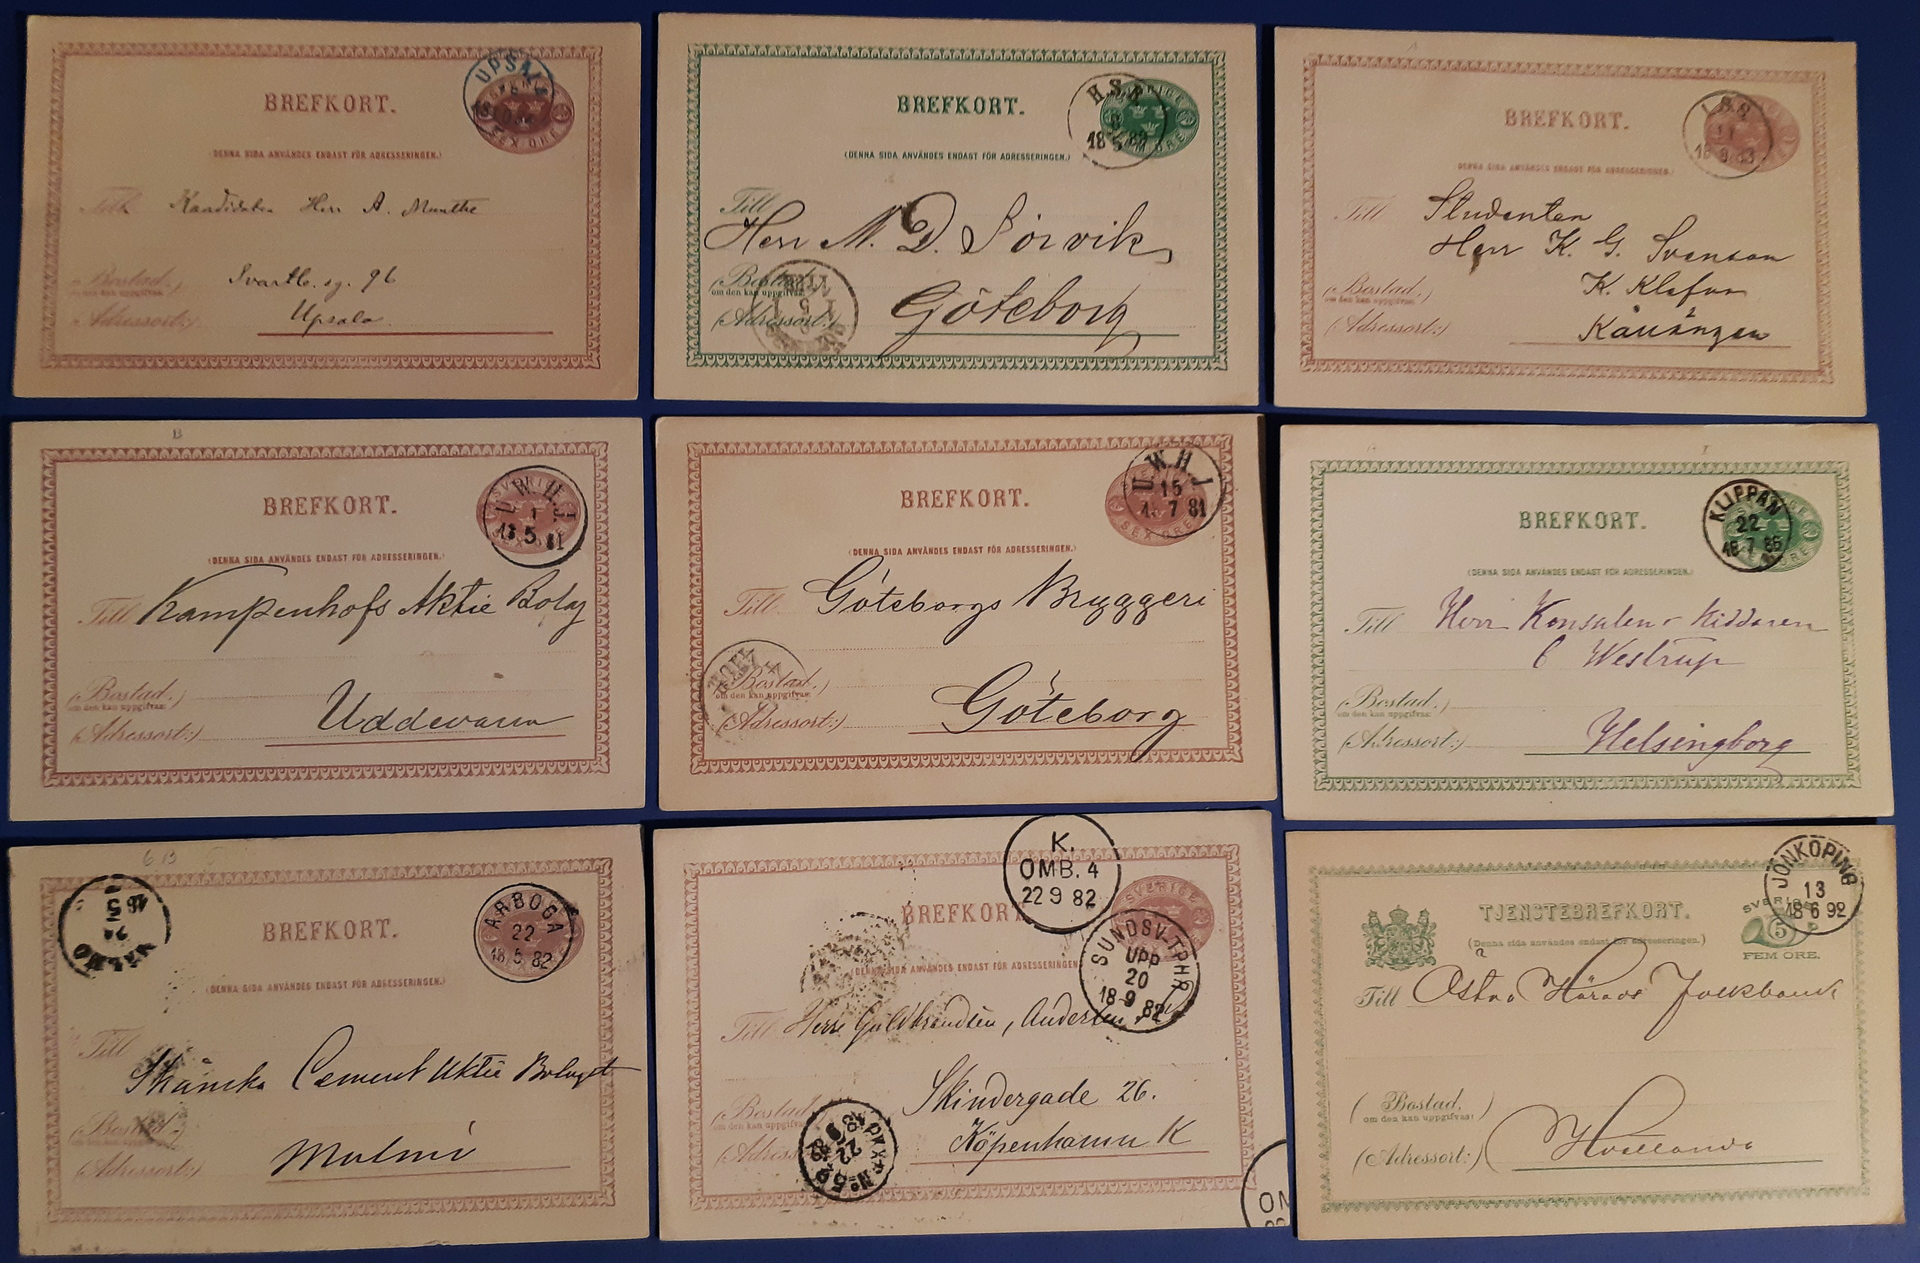 BREFKORT.
UPSALA
SEX ÖRE
(DENNA SIDA ANVÄNDES ENDAST FÖR ADRESSERINGEN.)
Till Kandidaten Herr A. Munthe
(Bostad.) Svartb.g. 96
(Adressort:) Upsala
BREFKORT.
SVERIGE
(DENNA SIDA ANVÄNDES ENDAST FÖR ADRESSERINGEN.)
Till
Herr M. D. Sörvik
(Bostad.
om den kan uppgifvas:
(Adressort:) Göteborg
BREFKORT.
(DENNA SIDA ANVÄNDES ENDAST FÖR ADRESSERINGEN.)
Till Studenten
Herr K. G. Svenson
(Bostad.
om den kan uppgifvas:)
(Adressort:)
BREFKORT.
SVERIGE
U.W.H.J
1
18 5 81
(DENNA SIDA ANVÄNDES ENDAST FÖR ADRESSERINGEN.)
Till Kampenhofs Aktie Bolag
(Bostad.
om den kan uppgifvas:)
(Adressort:) Uddevalla
BREFKORT.
U.W.H.J
15
18 7 81
SEX ÖRE
(DENNA SIDA ANVÄNDES ENDAST FÖR ADRESSERINGEN.)
Till Göteborgs Bryggeri
(Bostad.
om den kan uppgifvas:)
(Adressort:) Göteborg
BREFKORT.
KLIPPAN
22
18 7 86
(DENNA SIDA ANVÄNDES ENDAST FÖR ADRESSERINGEN.)
Till Herr Konsulen o Riddaren
C Westrup
(Bostad.
om den kan uppgifvas:)
(Adressort:) Helsingborg
MALMÖ
18 5
BREFKORT.
ARBOGA
22
18 5 82
(DENNA SIDA ANVÄNDES ENDAST FÖR ADRESSERINGEN.)
Till
Skånska Cement Aktie Bolaget
(Bostad.
(Adressort:) Malmö
K.
OMB. 4
22 9 82
BREFKORT.
SVERIGE
SUNDSV.TPHR
UPP
20
18 9 82
(DENNA SIDA ANVÄNDES ENDAST FÖR ADRESSERINGEN.
Till Herr Guldbrandsen, Andersen
(Bostad. Skindergade 26.
om den kan uppgifvas:
(Adressort:) Köpenhamn K
OM
JÖNKÖPING
13
18 6 92
TJENSTEBREFKORT.
SVERIGE
5
FEM ÖRE.
(Denna sida användes endast för adresseringen.)
Till Östra Härads Folkbank
(Bostad.
om den kan uppgifvas:)
(Adressort:) Hvetlanda